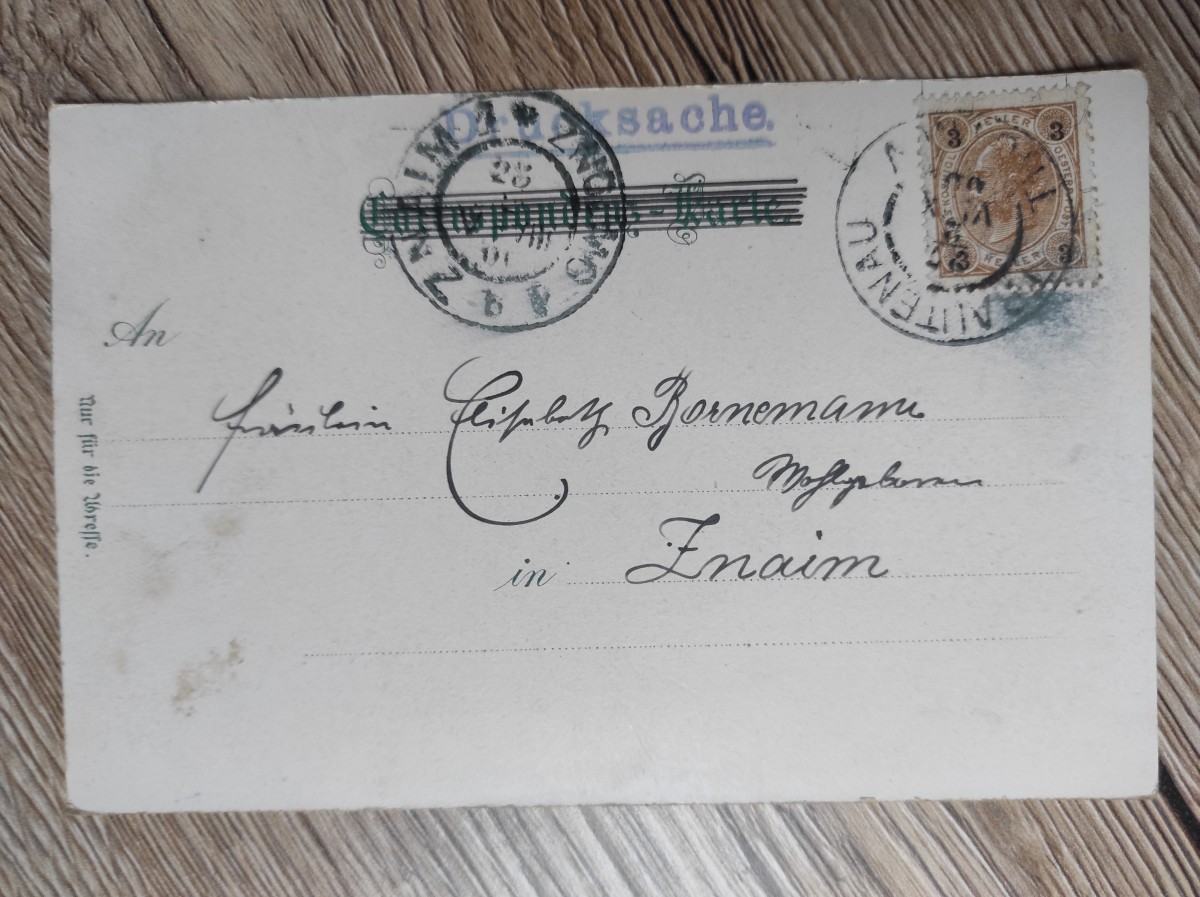 Drucksache.
Correspondenz-Karte.
ZNAIM 1 * ZNOJMO 1
28
3 3
HELLER
3 3
HELLER
An
Fräulein Elisabeth Bornemann
Wohlgeboren
in Znaim
Nur für die Adresse.